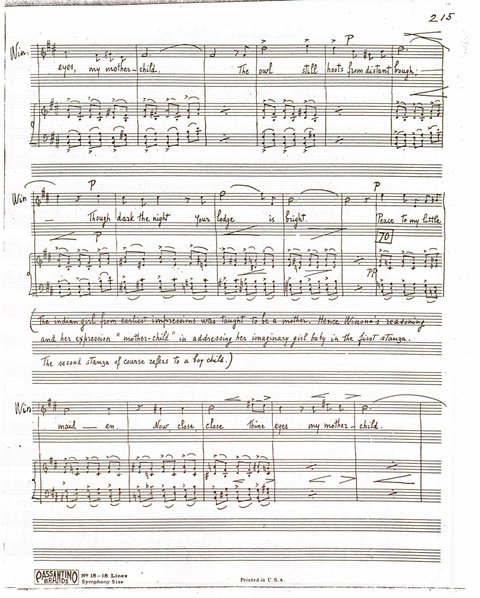 215
Win: P
eyes, my mother-child. The owl still hoots from distant bough;
Win P
Though dark the night your lodge is bright. Peace to my little
P 70
PP
(The indian girl from earliest impressions was taught to be a mother. Hence Winona's reasoning
and her expression "mother-child" in addressing her imaginary girl baby in the first stanza.
The second stanza of course refers to a boy child.)
Win P
maid — en. Now, close close thine eyes my mother-child.
PASSANTINO BRANDS Nº 18 - 18 Lines Printed in U.S.A.
Symphony Size